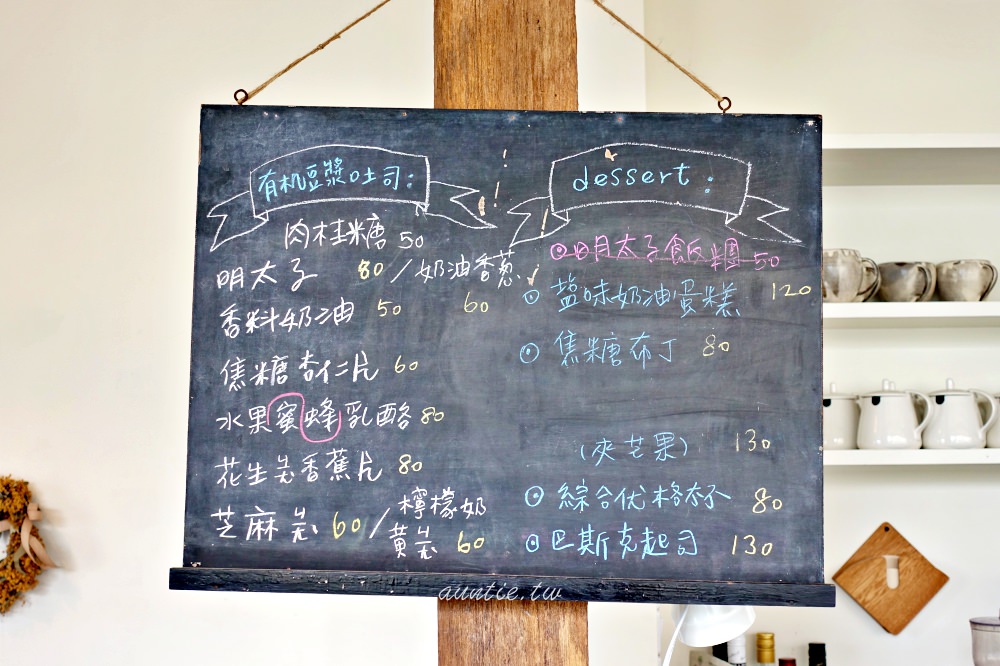 有机豆漿吐司:
肉桂糖 50
明太子 80 / 奶油香蔥 60
香料奶油 50
焦糖杏仁片 60
水果蜜蜂乳酪 80
花生岩香蕉片 80
芝麻岩 60 / 檸檬奶黃岩 60
dessert:
明太子飯糰 50
盐味奶油蛋糕 120
焦糖布丁 80
(夾芒果) 130
綜合优格杯 80
巴斯克起司 130
auntie.tw